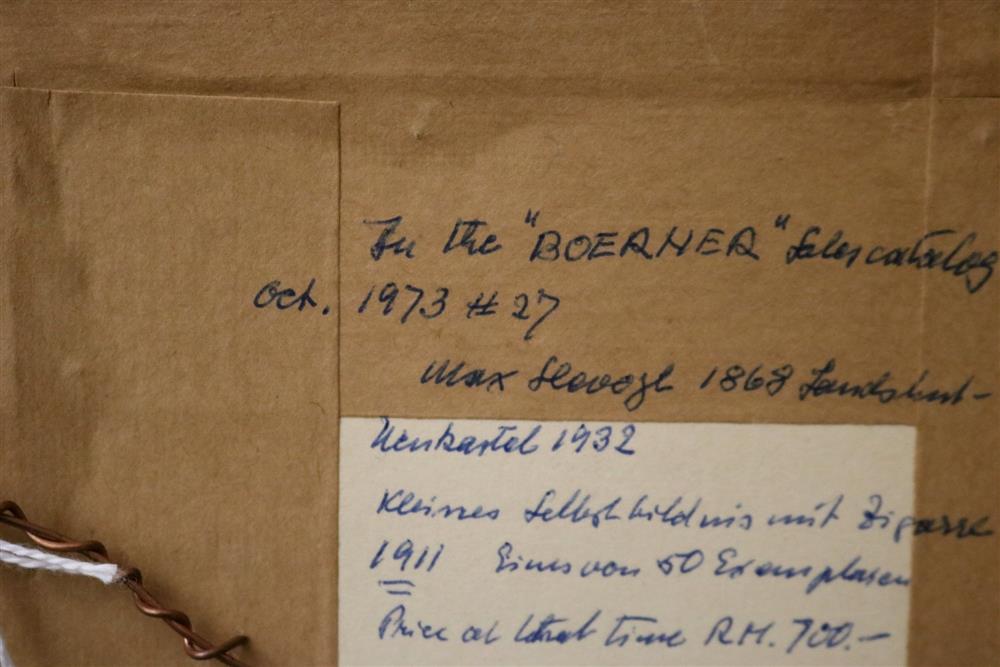 In the "BOERNER" Sales catalog
Oct. 1973 # 27
Max Slevogt 1868 Landshut-
Neukastel 1932
Kleines Selbstbildnis mit Zigarre
1911 Eines von 50 Exemplaren
Price at that time R.M. 700.-